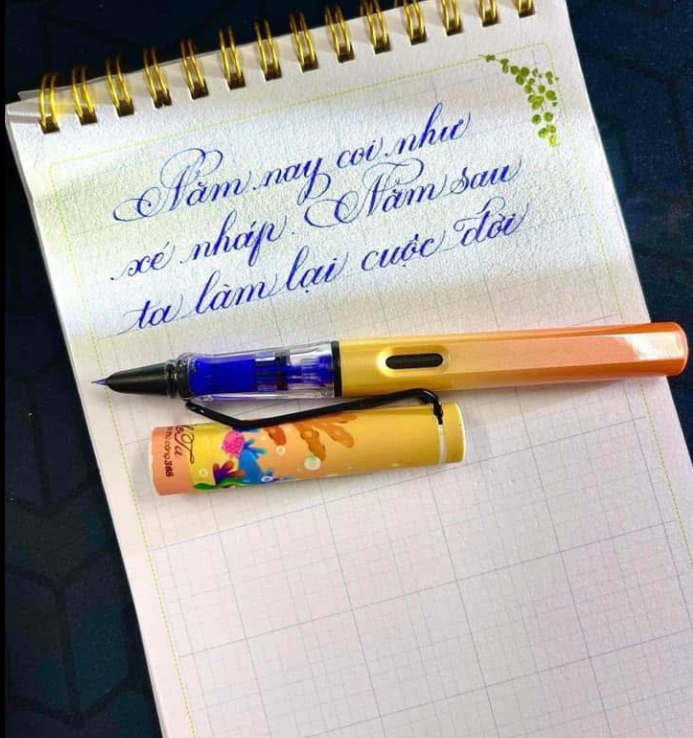 Năm nay coi như
xé nháp. Năm sau
ta làm lại cuộc đời